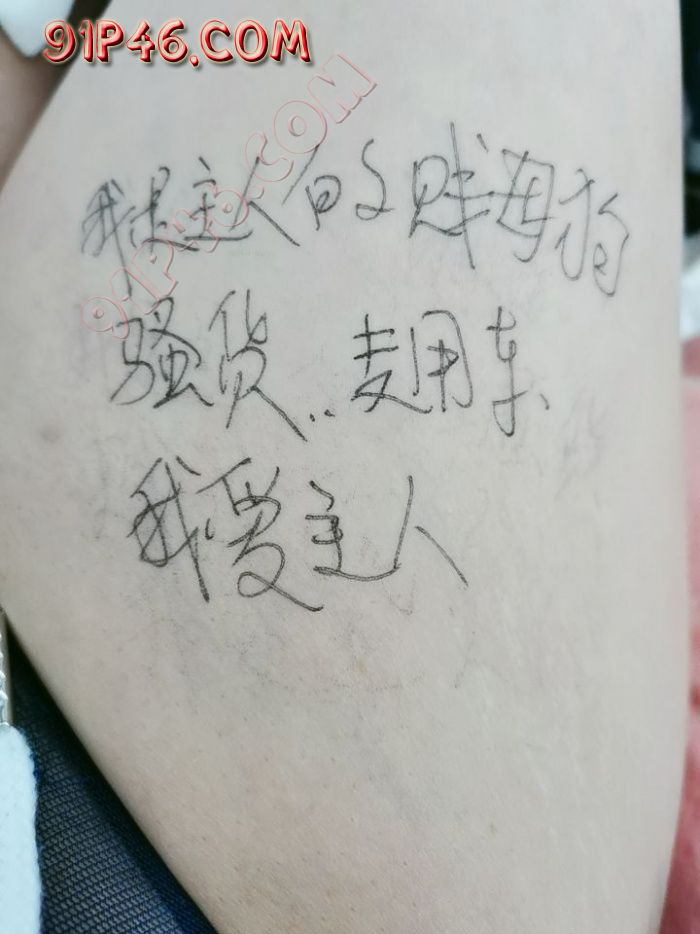 91P46.COM
91P46.COM
我是主人的贱母狗
骚货..专用车
我爱主人